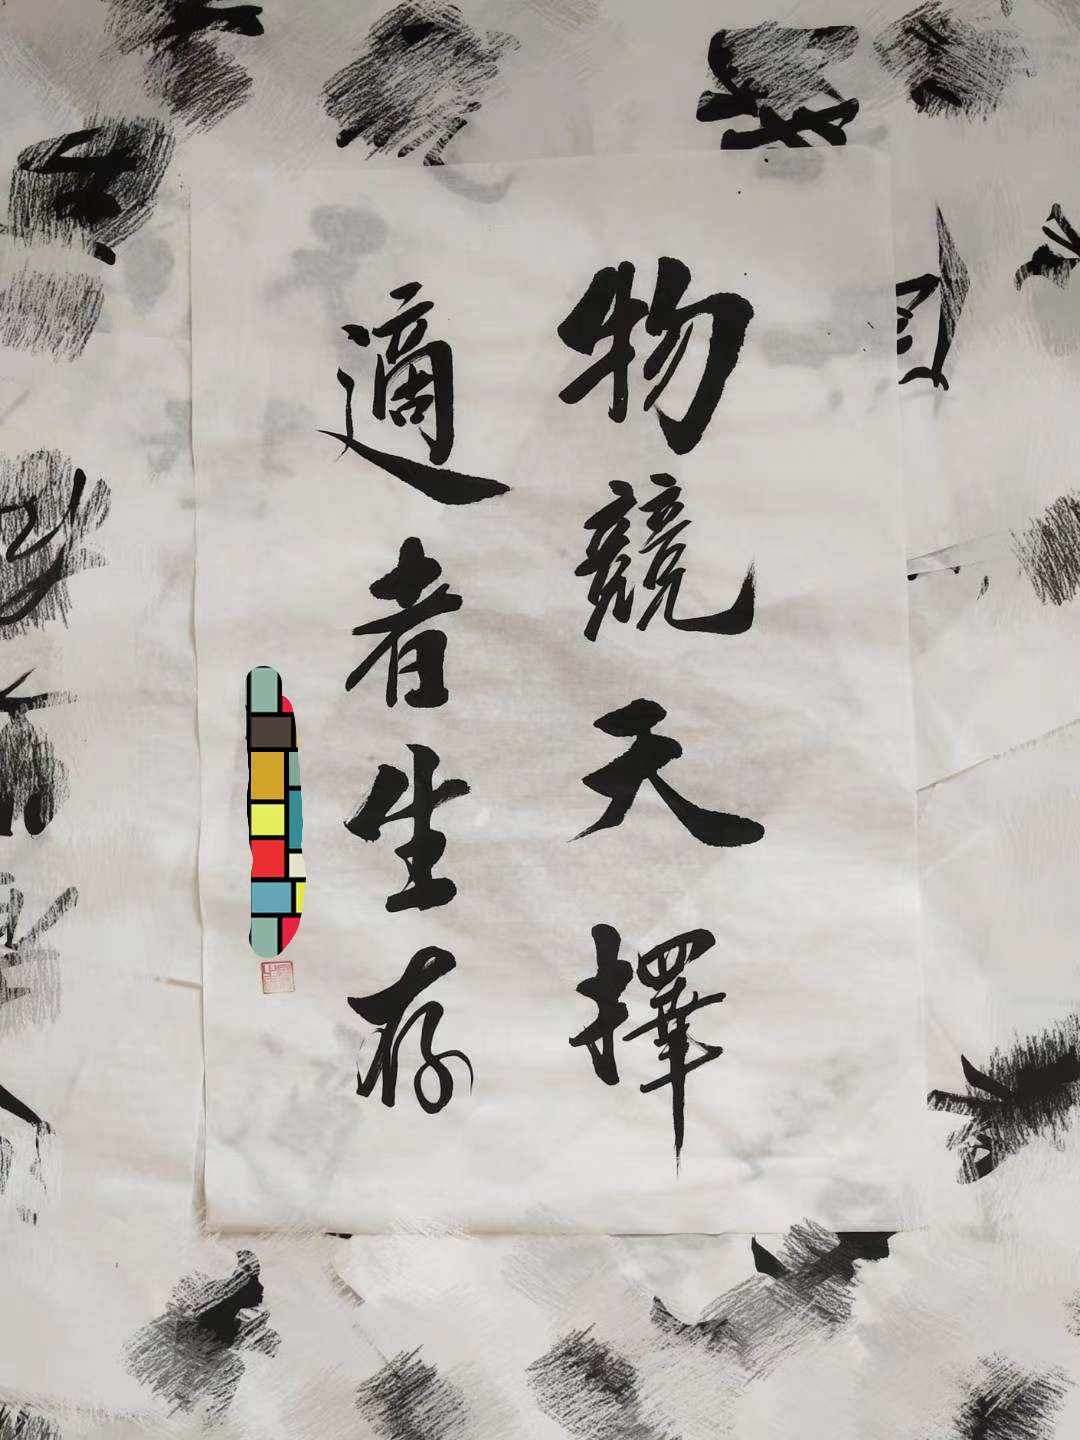 物競天擇
適者生存